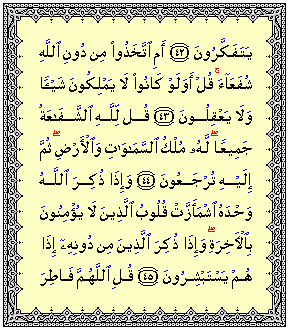 يَتَفَكَّرُونَ ﴿٤٢﴾ أَمِ ٱتَّخَذُوا۟ مِن دُونِ ٱللَّهِ
شُفَعَآءَ ۚ قُلْ أَوَلَوْ كَانُوا۟ لَا يَمْلِكُونَ شَيْـًٔا
وَلَا يَعْقِلُونَ ﴿٤٣﴾ قُل لِّلَّهِ ٱلشَّفَـٰعَةُ
جَمِيعًا ۖ لَّهُۥ مُلْكُ ٱلسَّمَـٰوَٰتِ وَٱلْأَرْضِ ۖ ثُمَّ
إِلَيْهِ تُرْجَعُونَ ﴿٤٤﴾ وَإِذَا ذُكِرَ ٱللَّهُ
وَحْدَهُ ٱشْمَأَزَّتْ قُلُوبُ ٱلَّذِينَ لَا يُؤْمِنُونَ
بِٱلْـَٔاخِرَةِ ۖ وَإِذَا ذُكِرَ ٱلَّذِينَ مِن دُونِهِۦٓ إِذَا
هُمْ يَسْتَبْشِرُونَ ﴿٤٥﴾ قُلِ ٱللَّهُمَّ فَاطِرَ